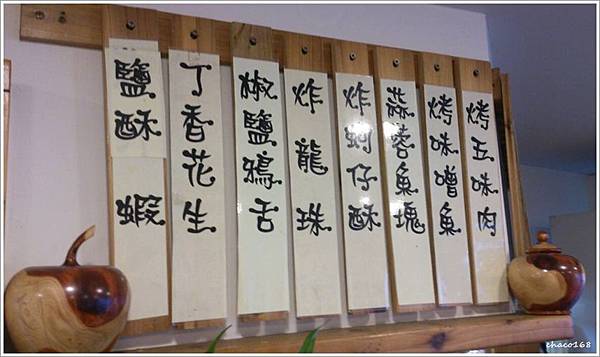 烤五味肉
烤味噌魚
蒜蓉魚塊
炸蚵仔酥
炸龍珠
椒鹽鴉舌
丁香花生
鹽酥蝦
chaco168